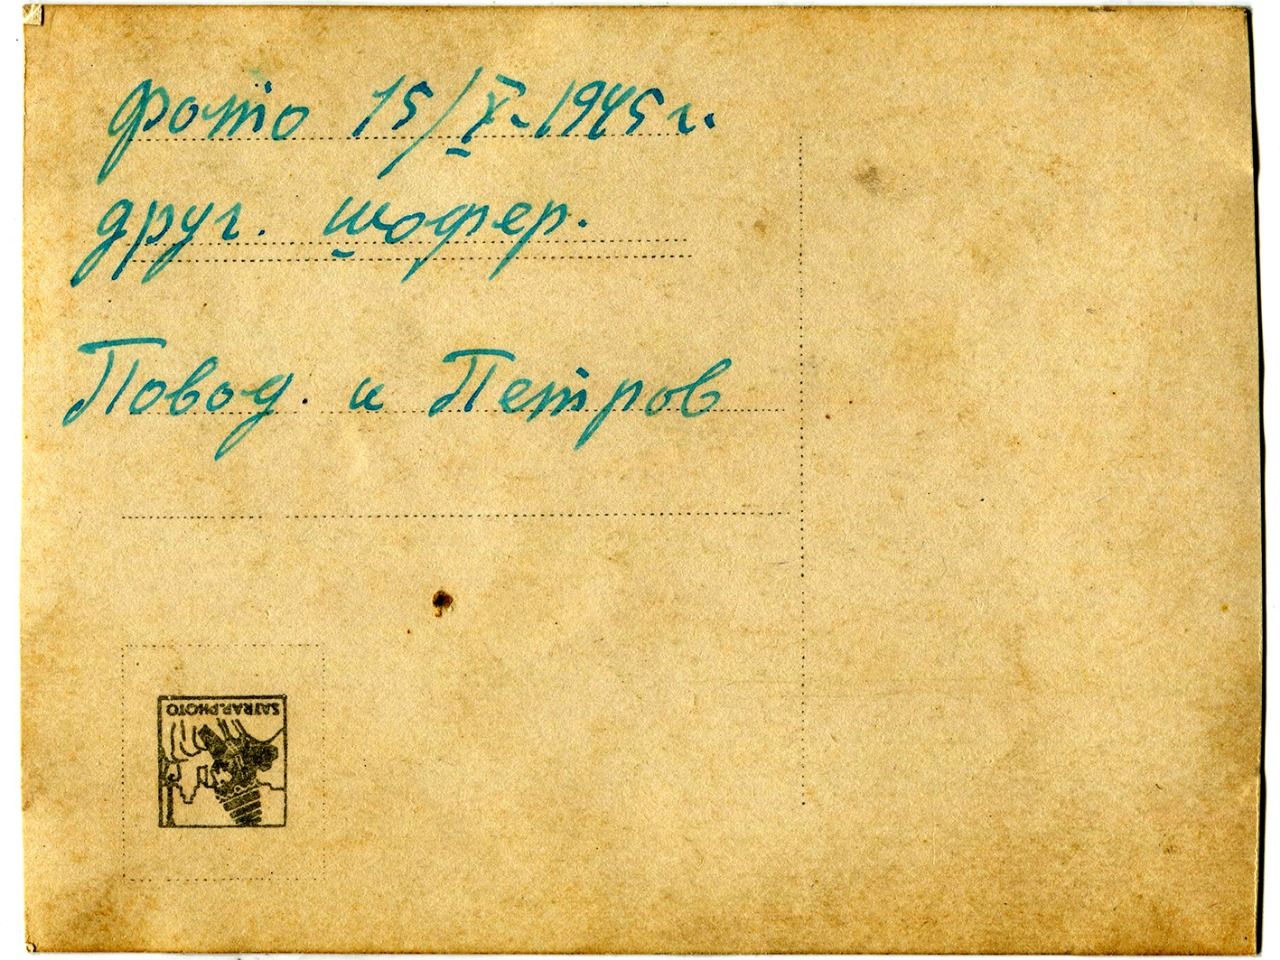 фото 15/X-1945 г.
друг. шофер.
Повод. и Петров
SATRAP.PHOTO